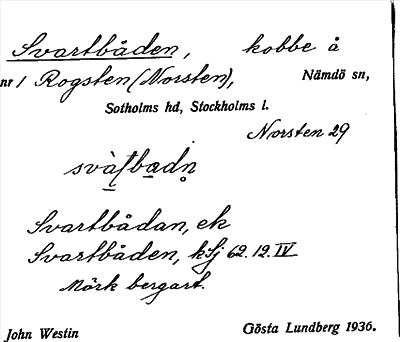 Svartbåden, kobbe å
nr 1 Rogsten (Norsten), Nämdö sn,
Sotholms hd, Stockholms l.
Norsten 29
Svartbådan, ek
Svartbåden, kSj 62.12.IV
Mörk bergart.
John Westin Gösta Lundberg 1936.